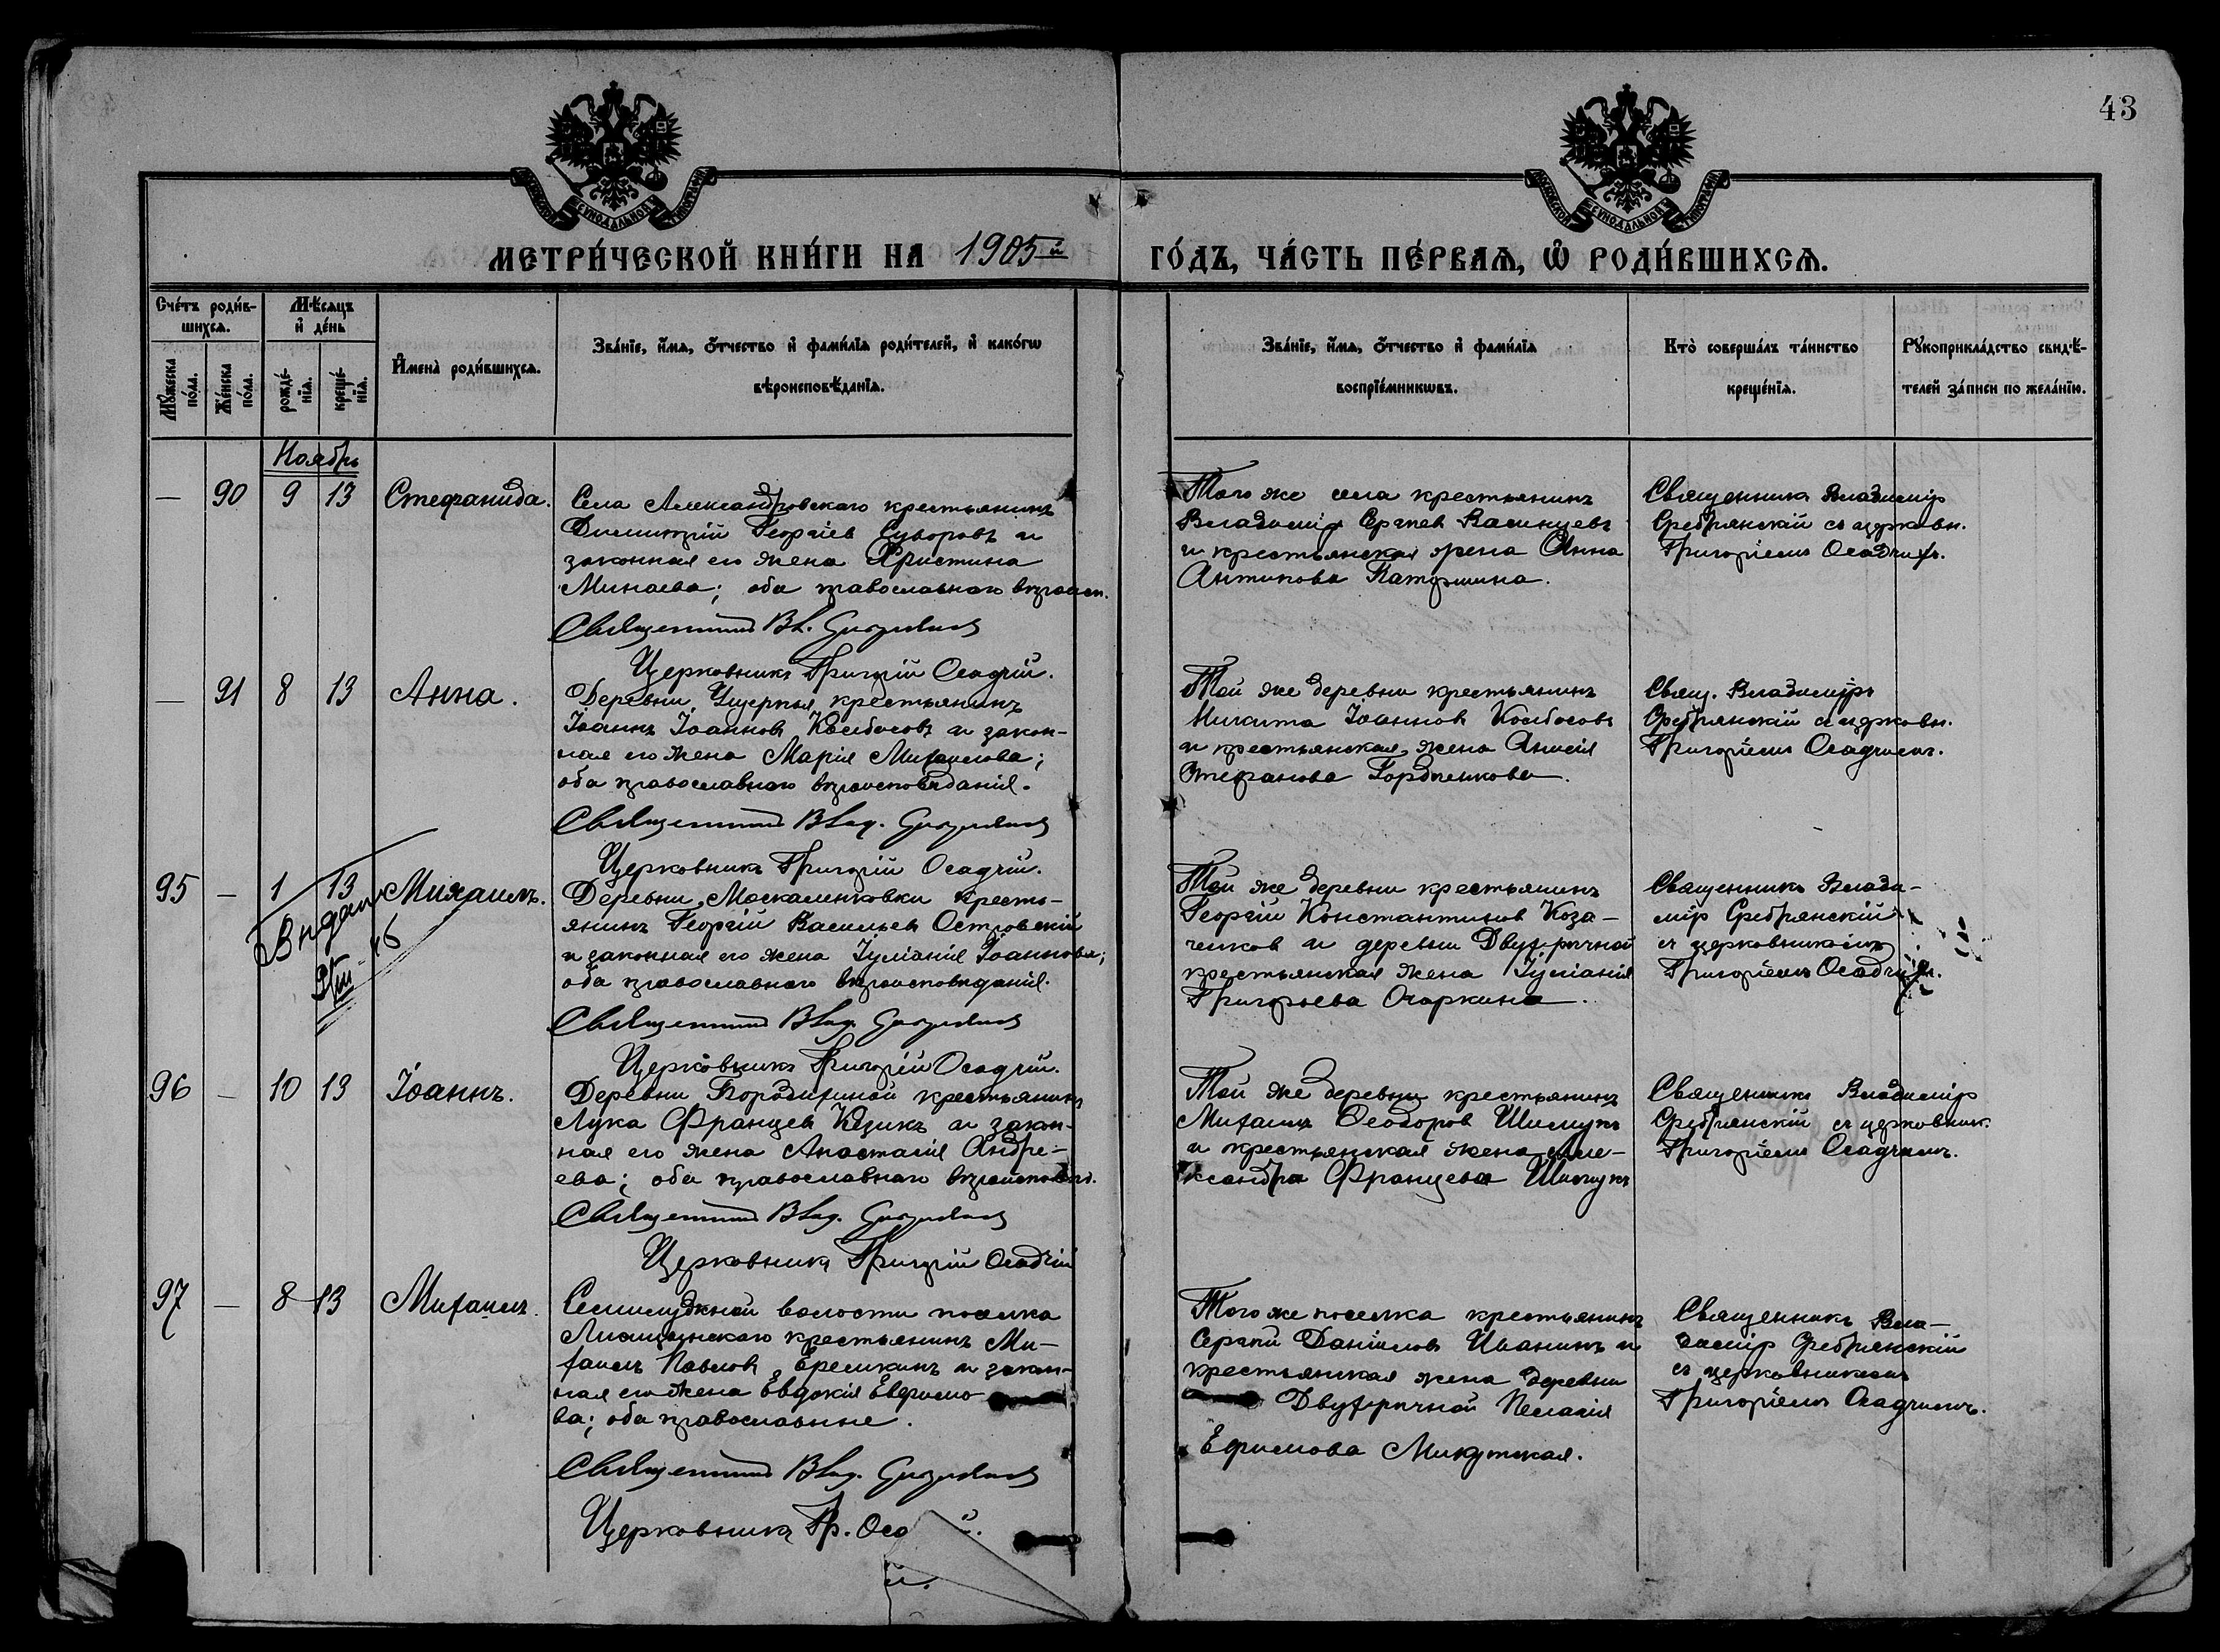 43
МЕТРИ́ЧЕСКОЙ КНИ́ГИ НА 1905 й
ГО́ДЪ, ЧА́СТЬ ПЕ́РВАѦ, Ѿ РОДИ́ВШИХСѦ.
Сче́тъ роди́в-
шихсѧ.
Мѣ́сяцъ
и҆ де́нь
И҆мена̀ роди́вшихсѧ.
Зва́нїе, и҆́мѧ, ѻ҆́тчество и҆ фами́лїѧ роди́телей, и҆ како́гѡ
вѣроисповѣ́данїѧ.
Му́жеска
по́ла.
Же́нска
по́ла.
рожде́-
нїѧ.
креще́-
нїѧ.
Зва́нїе, и҆́мѧ, ѻ҆́тчество и҆ фами́лїѧ
воспрїе́мникѡвъ.
Кто̀ соверша́лъ та́инство
креще́нїѧ.
Рꙋкоприкла́дство свидѣ́-
телей за́писи по жела́нїю.
Ноябрь
— 90 9 13 Стефанида.
Села Александровскаго крестьянинъ
Димитрій Георгіевъ Суворовъ и
законная его жена Христина
Минаева; оба православнаго
Священникъ Вл.
Церковникъ Григорій Осадчій.
Того же села крестьянинъ
Владиміръ Сергіевъ
и крестьянская жена Анна
Антипова
Священникъ Владиміръ
Сребрянскій съ церковн.
Григоріемъ Осадчимъ.
— 91 8 13 Анна.
Деревни крестьянинъ
Іоаннъ Іоанновъ Колбасовъ и закон-
ная его жена Марія Михаилова;
оба православнаго вѣроисповѣданія.
Священникъ Влад.
Церковникъ Григорій Осадчій.
Той же деревни крестьянинъ
Никита Іоанновъ Колбасовъ
и крестьянская жена Анисія
Стефанова Гордиенкова.
Свящ. Владиміръ
Сребрянскій съ церковн.
Григоріемъ Осадчимъ.
95 — 1 13 Михаилъ.
Деревни Москаленковки кресть-
янинъ Георгій Васильевъ Островскій
и законная его жена Іуліанія Іоаннова;
оба православнаго вѣроисповѣданія.
Священникъ Влад.
Церковникъ Григорій Осадчій.
Той же деревни крестьянинъ
Георгій Константиновъ Коза-
ченковъ и деревни Двухрѣчной
крестьянская жена Іуліанія
Григорьева Очаркина.
Священникъ Влади-
міръ Сребрянскій
съ церковникомъ
Григоріемъ Осадчимъ.
96 — 10 13 Іоаннъ.
Деревни Бородихиной крестьянинъ
Лука Францевъ Козикъ и закон-
ная его жена Анастасія Андре-
ева; оба православнаго
Священникъ Влад.
Церковникъ Григорій Осадчій
Той же деревни крестьянинъ
Михаилъ Ѳеодоровъ Шимукъ
и крестьянская жена Але-
ксандра Францева Шимукъ
Священникъ Владиміръ
Сребрянскій съ церковник.
Григоріемъ Осадчимъ.
97 — 8 13 Михаилъ.
волости поселка
крестьянинъ Ми-
хаилъ Павловъ Еремкинъ и закон-
ная его жена Евдокія Евфимо-
ва; оба православные.
Священникъ Влад.
Церковникъ Гр.
Того же поселка крестьянинъ
Сергій Даніиловъ Иванинъ и
крестьянская жена деревни
Двухрѣчной Пелагія
Ефимова Микутская.
Священникъ Вла-
диміръ Сребрянскій
съ церковникомъ
Григоріемъ Осадчимъ.